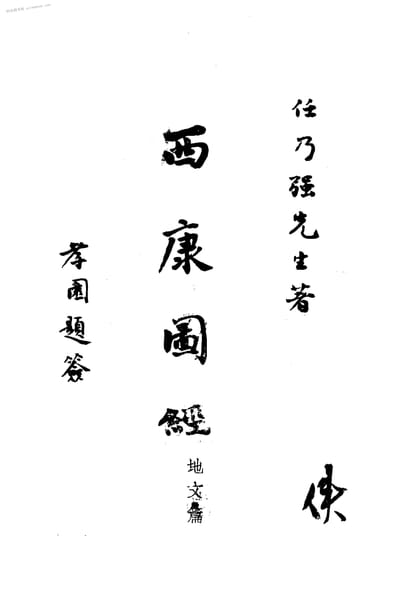 任乃强先生著
西康圖經
地文篇
孝園題簽